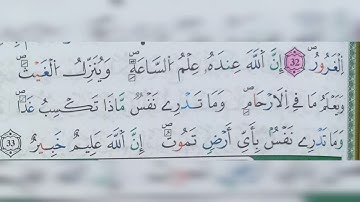 اِ۬لْغَرُورُۖ 32 إِنَّ اَ۬للَّهَ عِندَهُۥ عِلْمُ اُ۬لسَّاعَةِۖ وَيُنَزِّلُ اُ۬لْغَيْثَۖ
وَيَعْلَمُ مَا فِے اِ۬لَارْحَامِۖ وَمَا تَدْرِے نَفْسٞ مَّاذَا تَكْسِبُ غَداٗۖ
وَمَا تَدْرِے نَفْسُۢ بِأَيِّ أَرْضٖ تَمُوتُۖ إِنَّ اَ۬للَّهَ عَلِيمٌ خَبِيرٞۖ 33